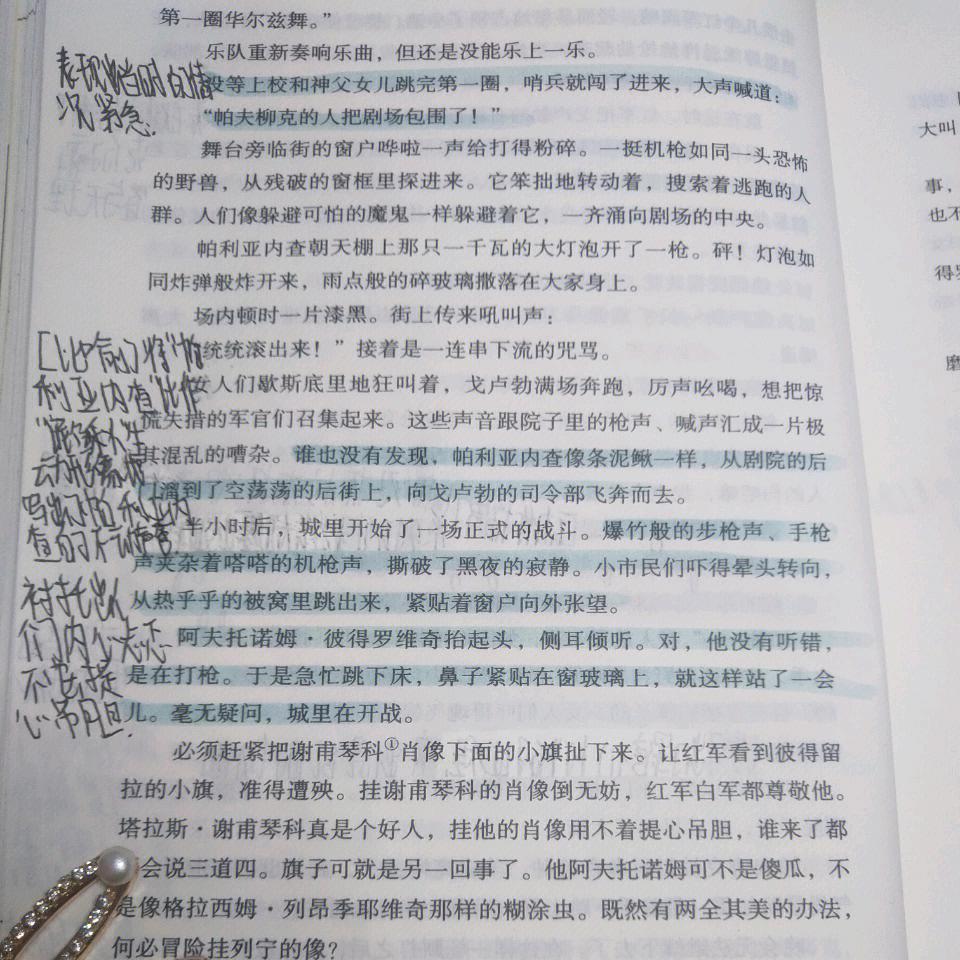 第一圈华尔兹舞。”
乐队重新奏响乐曲，但还是没能乐上一乐。
没等上校和神父女儿跳完第一圈，哨兵就闯了进来，大声喊道：
“帕夫柳克的人把剧场包围了！”
舞台旁临街的窗户哗啦一声给打得粉碎。一挺机枪如同一头恐怖
的野兽，从残破的窗框里探进来。它笨拙地转动着，搜索着逃跑的人
群。人们像躲避可怕的魔鬼一样躲避着它，一齐涌向剧场的中央。
帕利亚内查朝天棚上那只一千瓦的大灯泡开了一枪。砰！灯泡如
同炸弹般炸开来，雨点般的碎玻璃撒落在大家身上。
场内顿时一片漆黑。街上传来吼叫声：
统统滚出来！”接着是一连串下流的咒骂。
女人们歇斯底里地狂叫着，戈卢勃满场奔跑，厉声吆喝，想把惊
慌失措的军官们召集起来。这些声音跟院子里的枪声、喊声汇成一片极
其混乱的嘈杂。谁也没有发现，帕利亚内查像条泥鳅一样，从剧院的后
门溜到了空荡荡的后街上，向戈卢勃的司令部飞奔而去。
半小时后，城里开始了一场正式的战斗。爆竹般的步枪声、手枪
声夹杂着嗒嗒的机枪声，撕破了黑夜的寂静。小市民们吓得晕头转向，
从热乎乎的被窝里跳出来，紧贴着窗户向外张望。
阿夫托诺姆·彼得罗维奇抬起头，侧耳倾听。对，他没有听错，
是在打枪。于是急忙跳下床，鼻子紧贴在窗玻璃上，就这样站了一会
儿。毫无疑问，城里在开战。
必须赶紧把谢甫琴科①肖像下面的小旗扯下来。让红军看到彼得留
拉的小旗，准得遭殃。挂谢甫琴科的肖像倒无妨，红军白军都尊敬他。
塔拉斯·谢甫琴科真是个好人，挂他的肖像用不着提心吊胆，谁来了都
会说三道四。旗子可就是另一回事了。他阿夫托诺姆可不是傻瓜，不
是像格拉西姆·列昂季耶维奇那样的糊涂虫。既然有两全其美的办法，
何必冒险挂列宁的像？
表现出当时的情
况紧急.
[比喻]将“帕
利亚内查”比作
写出了帕利亚内
查的
衬托出
们内心
提
心吊胆.
大叫
事，
也不
得
磨